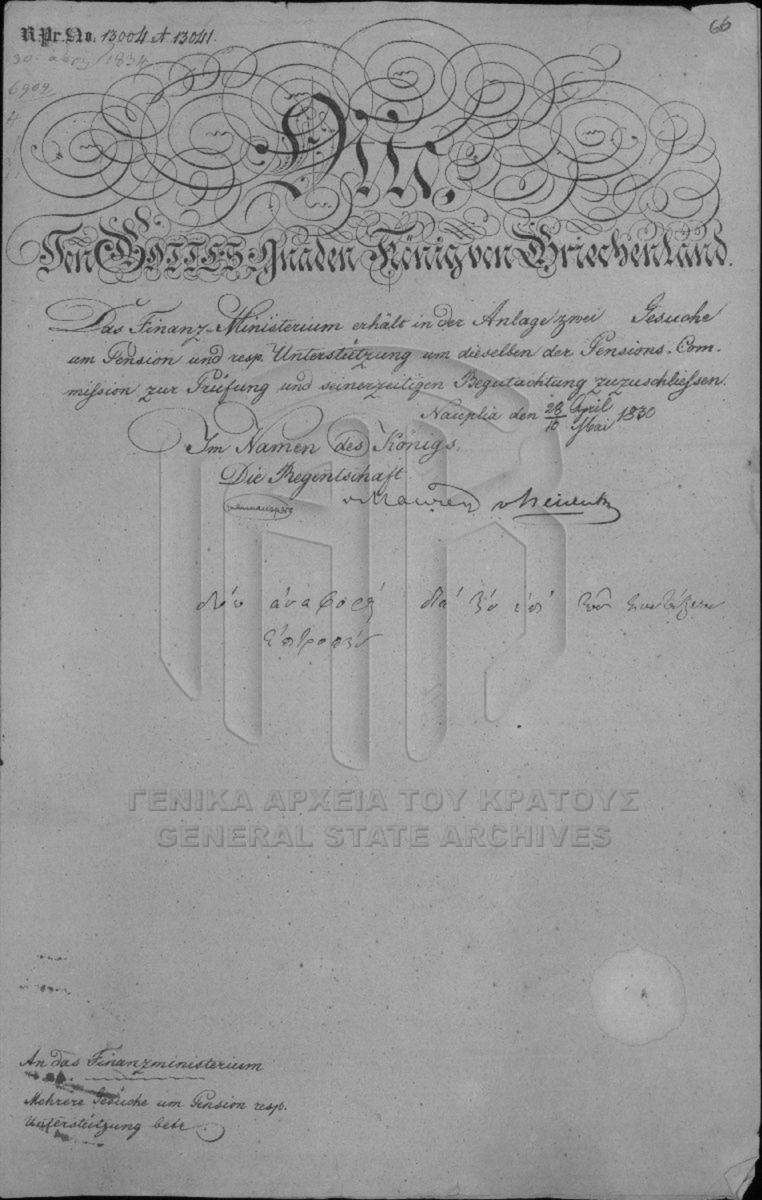 R. Pr. No. 13004 et 13041.
66
30 april 1834
6909
OTTO,
Von GOTTES Gnaden König von Griechenland.
Das Finanz-Ministerium erhält in der Anlage zwei Gesuche
um Pension und resp. Unterstützung um dieselben der Pensions-Com-
mission zur Prüfung und seinerzeitigen Begutachtung zuzuschliessen.
Nauplia den 28 April / 10 Mai 1830
Im Namen des Königs.
Die Regentschaft
v Maurer v Heideck
ἀναφορὰ διὰ τὴν ἐπὶ τῶν συντάξεων
ἐπιτροπήν
ΓΕΝΙΚΑ ΑΡΧΕΙΑ ΤΟΥ ΚΡΑΤΟΥΣ
GENERAL STATE ARCHIVES
An das Finanzministerium
Mehrere Gesuche um Pension resp.
Unterstützung betr.